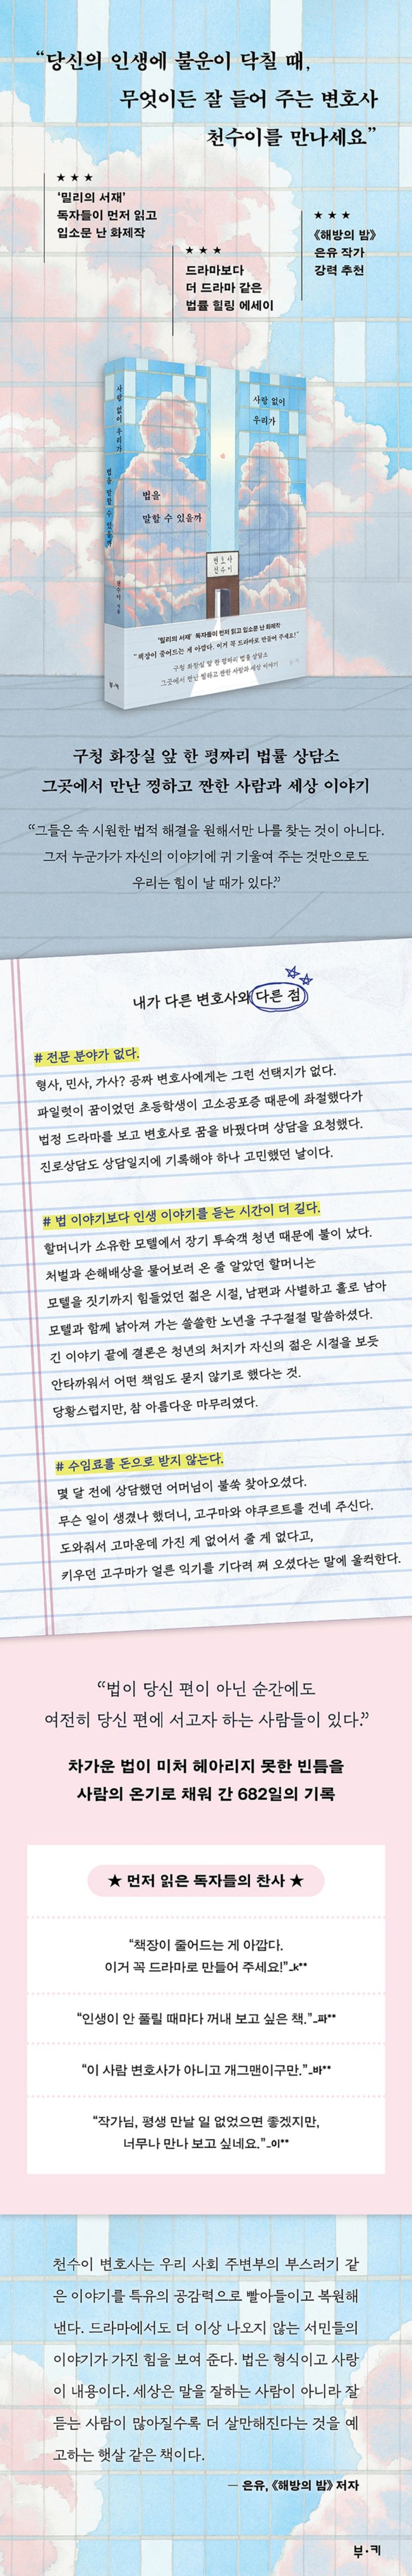 “당신의 인생에 불운이 닥칠 때,
무엇이든 잘 들어 주는 변호사
천수이를 만나세요”
★ ★ ★
‘밀리의 서재’
독자들이 먼저 읽고
입소문 난 화제작
★ ★ ★
드라마보다
더 드라마 같은
법률 힐링 에세이
★ ★ ★
《해방의 밤》
은유 작가
강력 추천
사랑 없이 우리가 법을 말할 수 있을까
천수이 지음
부·키
사랑 없이
우리가
법을
말할 수 있을까
변호사
천수이
‘밀리의 서재’ 독자들이 먼저 읽고 입소문 난 화제작
“책장이 줄어드는 게 아깝다. 이거 꼭 드라마로 만들어 주세요!”
구청 화장실 앞 한 평짜리 법률 상담소
그곳에서 만난 찡하고 짠한 사람과 세상 이야기
부·키
구청 화장실 앞 한 평짜리 법률 상담소
그곳에서 만난 찡하고 짠한 사람과 세상 이야기
“그들은 속 시원한 법적 해결을 원해서만 나를 찾는 것이 아니다.
그저 누군가가 자신의 이야기에 귀 기울여 주는 것만으로도
우리는 힘이 날 때가 있다.”
내가 다른 변호사와 다른 점
# 전문 분야가 없다.
형사, 민사, 가사? 공짜 변호사에게는 그런 선택지가 없다.
파일럿이 꿈이었던 초등학생이 고소공포증 때문에 좌절했다가
법정 드라마를 보고 변호사로 꿈을 바꿨다며 상담을 요청했다.
진로상담도 상담일지에 기록해야 하나 고민했던 날이다.
# 법 이야기보다 인생 이야기를 듣는 시간이 더 길다.
할머니가 소유한 모텔에서 장기 투숙객 청년 때문에 불이 났다.
처벌과 손해배상을 물어보러 온 줄 알았던 할머니는
모텔을 짓기까지 힘들었던 젊은 시절, 남편과 사별하고 홀로 남아
모텔과 함께 낡아져 가는 쓸쓸한 노년을 구구절절 말씀하셨다.
긴 이야기 끝에 결론은 청년의 처지가 자신의 젊은 시절을 보듯
안타까워서 어떤 책임도 묻지 않기로 했다는 것.
당황스럽지만, 참 아름다운 마무리였다.
# 수임료를 돈으로 받지 않는다.
몇 달 전에 상담했던 어머님이 불쑥 찾아오셨다.
무슨 일이 생겼나 했더니, 고구마와 야쿠르트를 건네 주신다.
도와줘서 고마운데 가진 게 없어서 줄 게 없다고,
키우던 고구마가 얼른 익기를 기다려 쪄 오셨다는 말에 울컥한다.
“법이 당신 편이 아닌 순간에도
여전히 당신 편에 서고자 하는 사람들이 있다.”
차가운 법이 미처 헤아리지 못한 빈틈을
사람의 온기로 채워 간 682일의 기록
★ 먼저 읽은 독자들의 찬사 ★
“책장이 줄어드는 게 아깝다.
이거 꼭 드라마로 만들어 주세요!”_k**
“인생이 안 풀릴 때마다 꺼내 보고 싶은 책.”_파**
“이 사람 변호사가 아니고 개그맨이구만.”_바**
“작가님, 평생 만날 일 없었으면 좋겠지만,
너무나 만나 보고 싶네요.”_이**
천수이 변호사는 우리 사회 주변부의 부스러기 같
은 이야기를 특유의 공감력으로 빨아들이고 복원해
낸다. 드라마에서도 더 이상 나오지 않는 서민들의
이야기가 가진 힘을 보여 준다. 법은 형식이고 사랑
이 내용이다. 세상은 말을 잘하는 사람이 아니라 잘
듣는 사람이 많아질수록 더 살만해진다는 것을 예
고하는 햇살 같은 책이다.
— 은유, 《해방의 밤》 저자
부·키